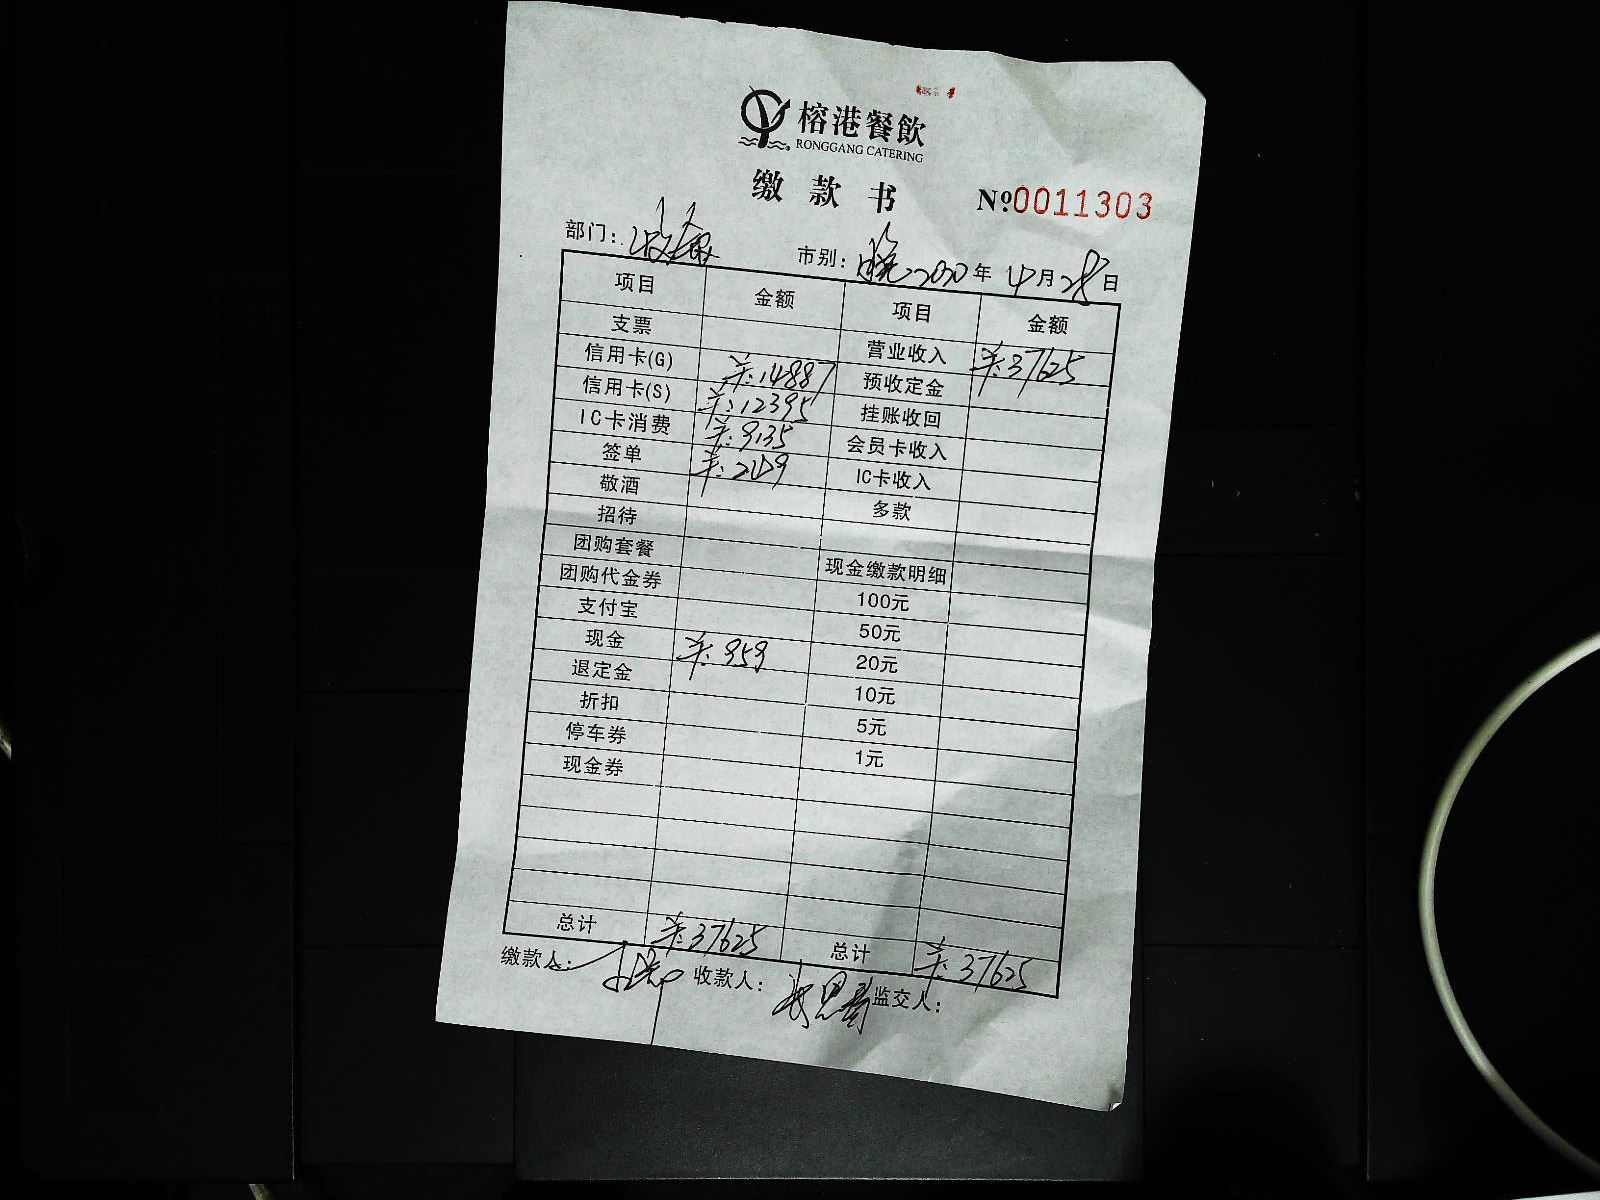 榕港餐飲
RONGGANG CATERING
缴款书 №0011303
部门: 市别: 晚 2020年4月28日
项目 金额 项目 金额
支票 营业收入 羊:37625
信用卡(G) 羊:14887 预收定金
信用卡(S) 羊:12395 挂账收回
IC卡消费 羊:9135 会员卡收入
签单 羊:249 IC卡收入
敬酒 多款
招待
团购套餐 现金缴款明细
团购代金券 100元
支付宝 50元
现金 羊:959 20元
退定金 10元
折扣 5元
停车券 1元
现金券
总计 羊:37625 总计 羊:37625
缴款人: 收款人: 监交人: